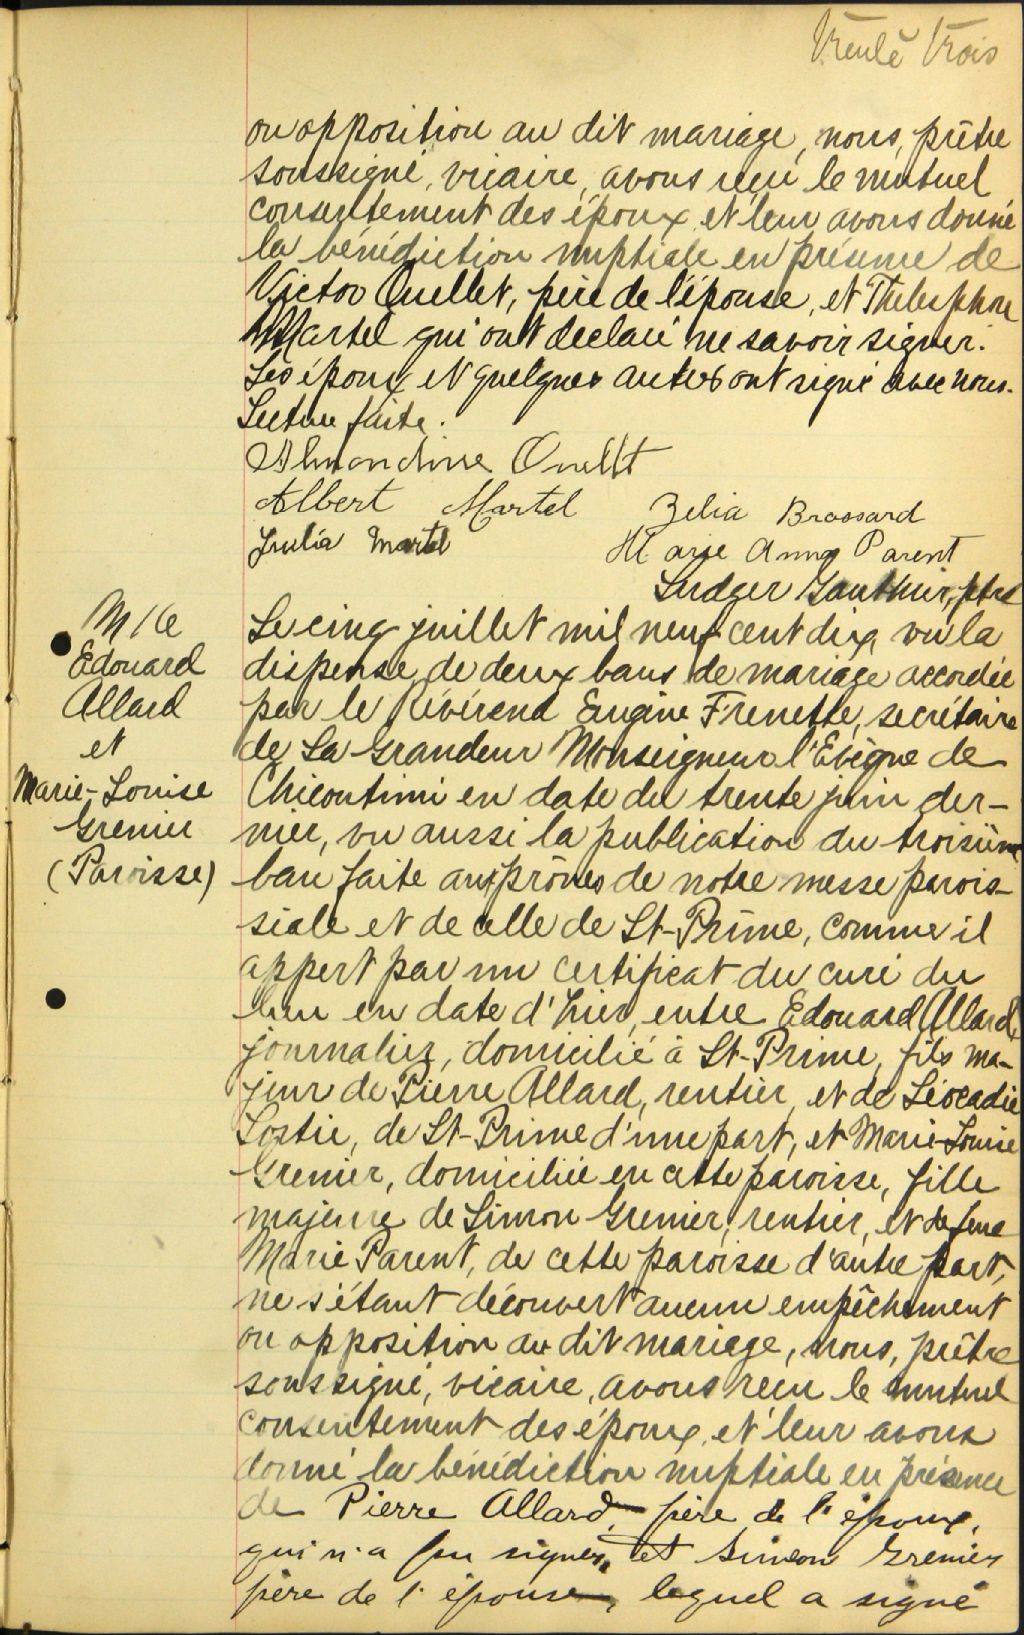 Trente Trois
ou opposition au dit mariage, nous, prêtre
soussigné, vicaire, avons reçu le mutuel
consentement des époux et leur avons donné
la bénédiction nuptiale en présence de
Victor Ouellet, père de l'épouse, et Thelesphore
Martel qui ont déclaré ne savoir signer.
Les époux et quelques autres ont signé avec nous.
Lecture faite.
Almandine Ouellet
Albert Martel Zelia Brassard
Julia Martel Marie Anna Parent
Ludger Gauthier, ptre
M 16
Edouard
Allard
et
Marie-Louise
Grenier
(Paroisse)
Le cinq juillet mil neuf cent dix, vu la
dispense de deux bans de mariage accordée
par le Révérend Eugène Frenette, secrétaire
de Sa Grandeur Monseigneur l'Evêque de
Chicoutimi en date du trente juin der-
nier, vu aussi la publication du troisième
ban faite aux prônes de notre messe parois-
siale et de celle de St-Prime, comme il
appert par un certificat du curé du
lieu en date d'hier, entre Edouard Allard,
journalier, domicilié à St-Prime, fils ma-
jeur de Pierre Allard, rentier, et de Léocadie
Lostie, de St-Prime d'une part, et Marie-Louise
Grenier, domiciliée en cette paroisse, fille
majeure de Simon Grenier, rentier, et de feue
Marie Parent, de cette paroisse d'autre part,
ne s'étant découvert aucun empêchement
ou opposition au dit mariage, nous, prêtre
soussigné, vicaire, avons reçu le mutuel
consentement des époux et leur avons
donné la bénédiction nuptiale en présence
de Pierre Allard, père de l'époux,
qui n'a pu signer, et Simeon Grenier
père de l'épouse, lequel a signé